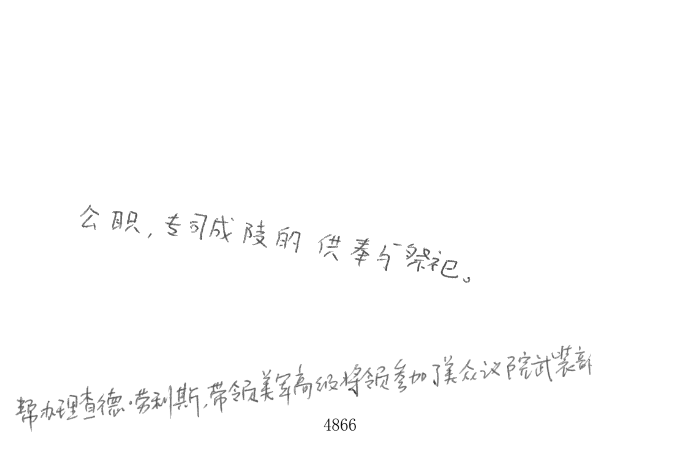 公职,专司成陵的供奉与祭祀。
帮办理查德·劳利斯,带领美军高级将领参加了美众议院武装部
4866